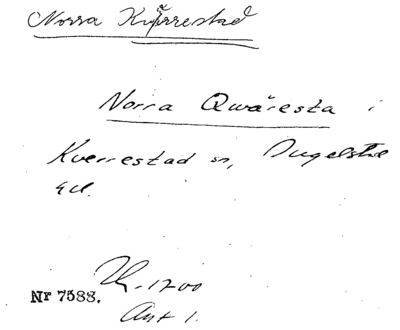 Norra Kvärrestad
Norra Qwäresta i
Kverrestad sn, Ingelstad
hd.
Nr 7588. -1700
Avt 1.